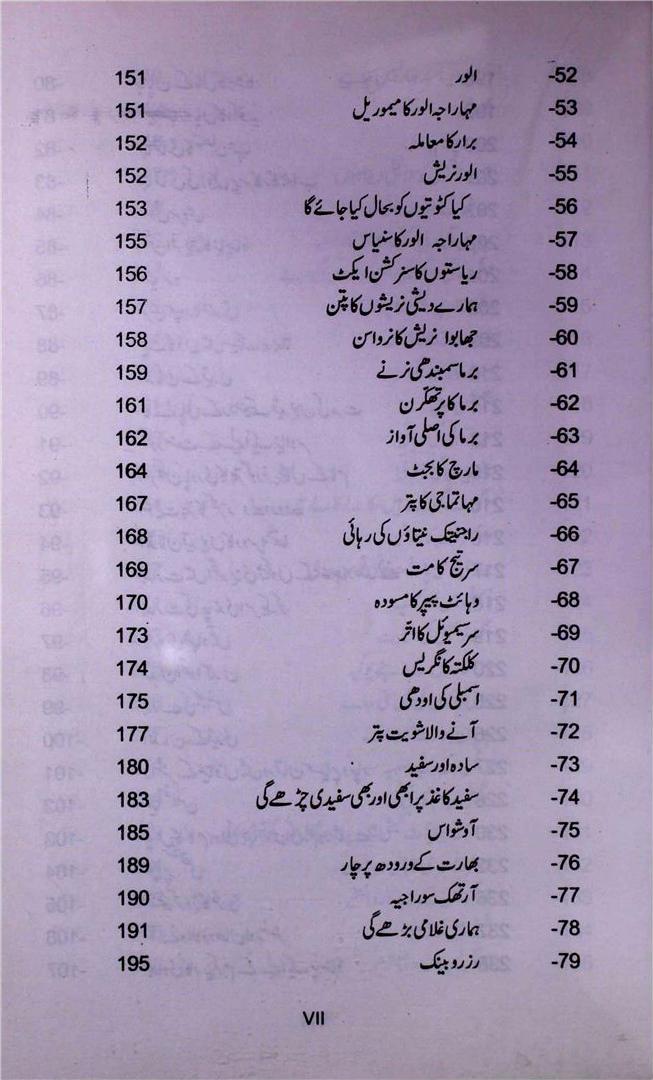 52- الور 151
53- مہاراجہ الور کا میموریل 151
54- برار کا معاملہ 152
55- الور نریش 152
56- کیا کٹوتیوں کو بحال کیا جائے گا 153
57- مہاراجہ الور کا سنیاس 155
58- ریاستوں کا سنرکشن ایکٹ 156
59- ہمارے دیشی نریشوں کا پتن 157
60- جھابوا نریش کا نرواسن 158
61- برما سمبندھی نرنے 159
62- برما کا پرتھکرن 161
63- برما کی اصلی آواز 162
64- مارچ کا بجٹ 164
65- مہاتما جی کا پتر 167
66- راجنیتک نیتاؤں کی رہائی 168
67- سر تیج کا مت 169
68- وہائٹ پیپر کا مسودہ 170
69- سر سیموئل کا اتر 173
70- کلکتہ کانگریس 174
71- اسمبلی کی اودھی 175
72- آنے والا شویت پتر 177
73- سادہ اور سفید 180
74- سفید کاغذ پر ابھی اور بھی سفیدی چڑھے گی 183
75- آوشواس 185
76- بھارت کے ورودھ پرچار 189
77- آرتھک سوراجیہ 190
78- ہماری غلامی بڑھے گی 191
79- رزرو بینک 195
VII